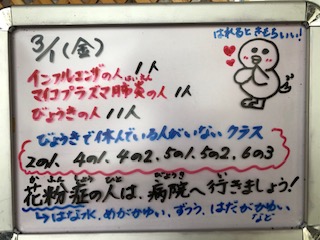 3/1(金)
はれるときもちいい!
インフルエンザの人 1人
はいえん
マイコプラズマ肺炎の人 1人
びょうきの人 11人
びょうきで休んでいる人がいない クラス
2の1、4の1、4の2、5の1、5の2、6の3
か ふん しょう ひと びょういん い
花粉症の人は、病院へ行きましょう!
↳はな水、めがかゆい、ずつう、はだがかゆい、
など